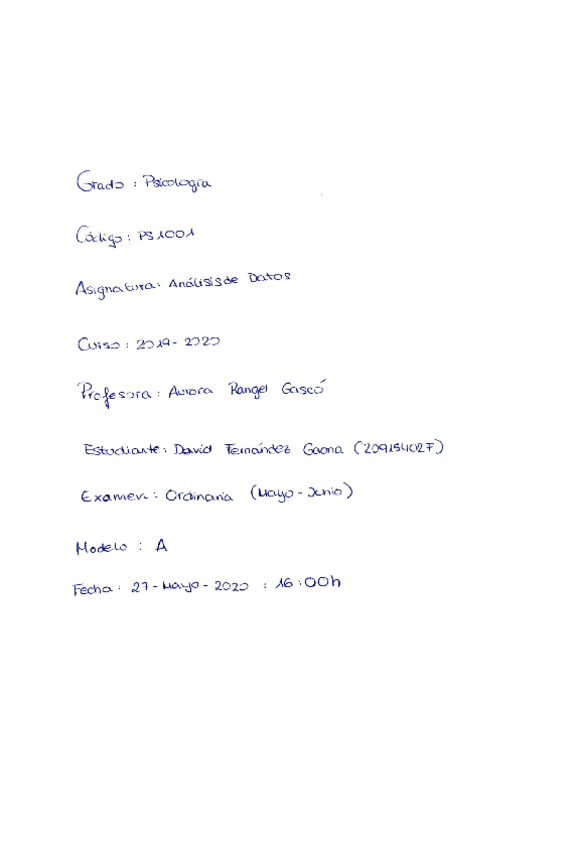 Grado : Psicología
Código : PS1001
Asignatura : Análisis de Datos
Curso : 2019 - 2020
Profesora : Aurora Rangel Gascó
Estudiante : David Fernández Gaona (20915402F)
Examen : Ordinaria (Mayo - Junio)
Modelo : A
Fecha : 27 - Mayo - 2020 : 16:00h